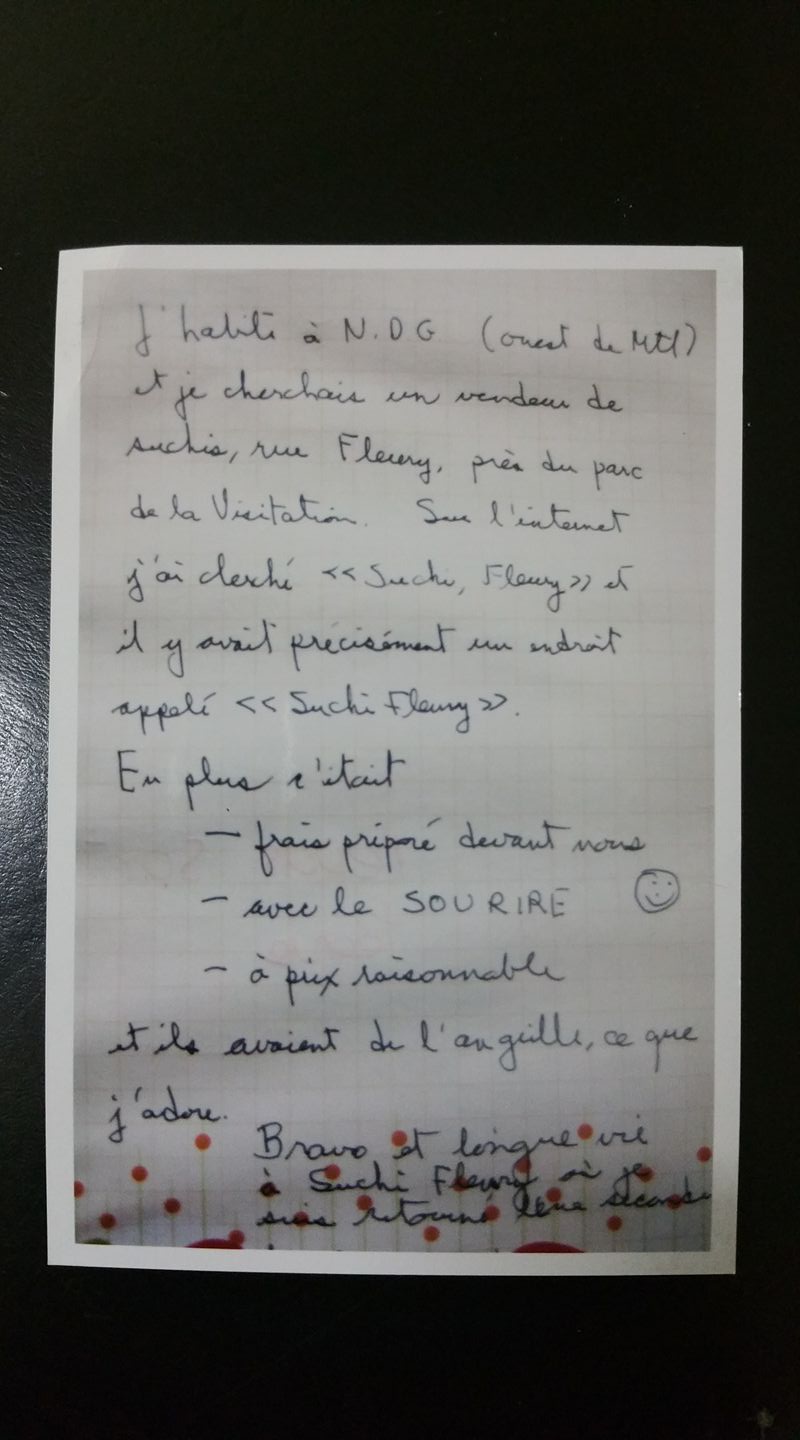 J'habite à N.D.G (ouest de Mtl)
et je cherchais un vendeur de
suchis, rue Fleury, près du parc
de la Visitation. Sur l'internet
j'ai cherché << Suchi, Fleury >> et
il y avait précisément un endroit
appelé << Suchi Fleury >>.
En plus c'était
— frais préparé devant nous
— avec le SOURIRE
— à prix raisonnable
et ils avaient de l'anguille, ce que
j'adore.
Bravo et longue vie
à Suchi Fleury où je
suis retourné une seconde